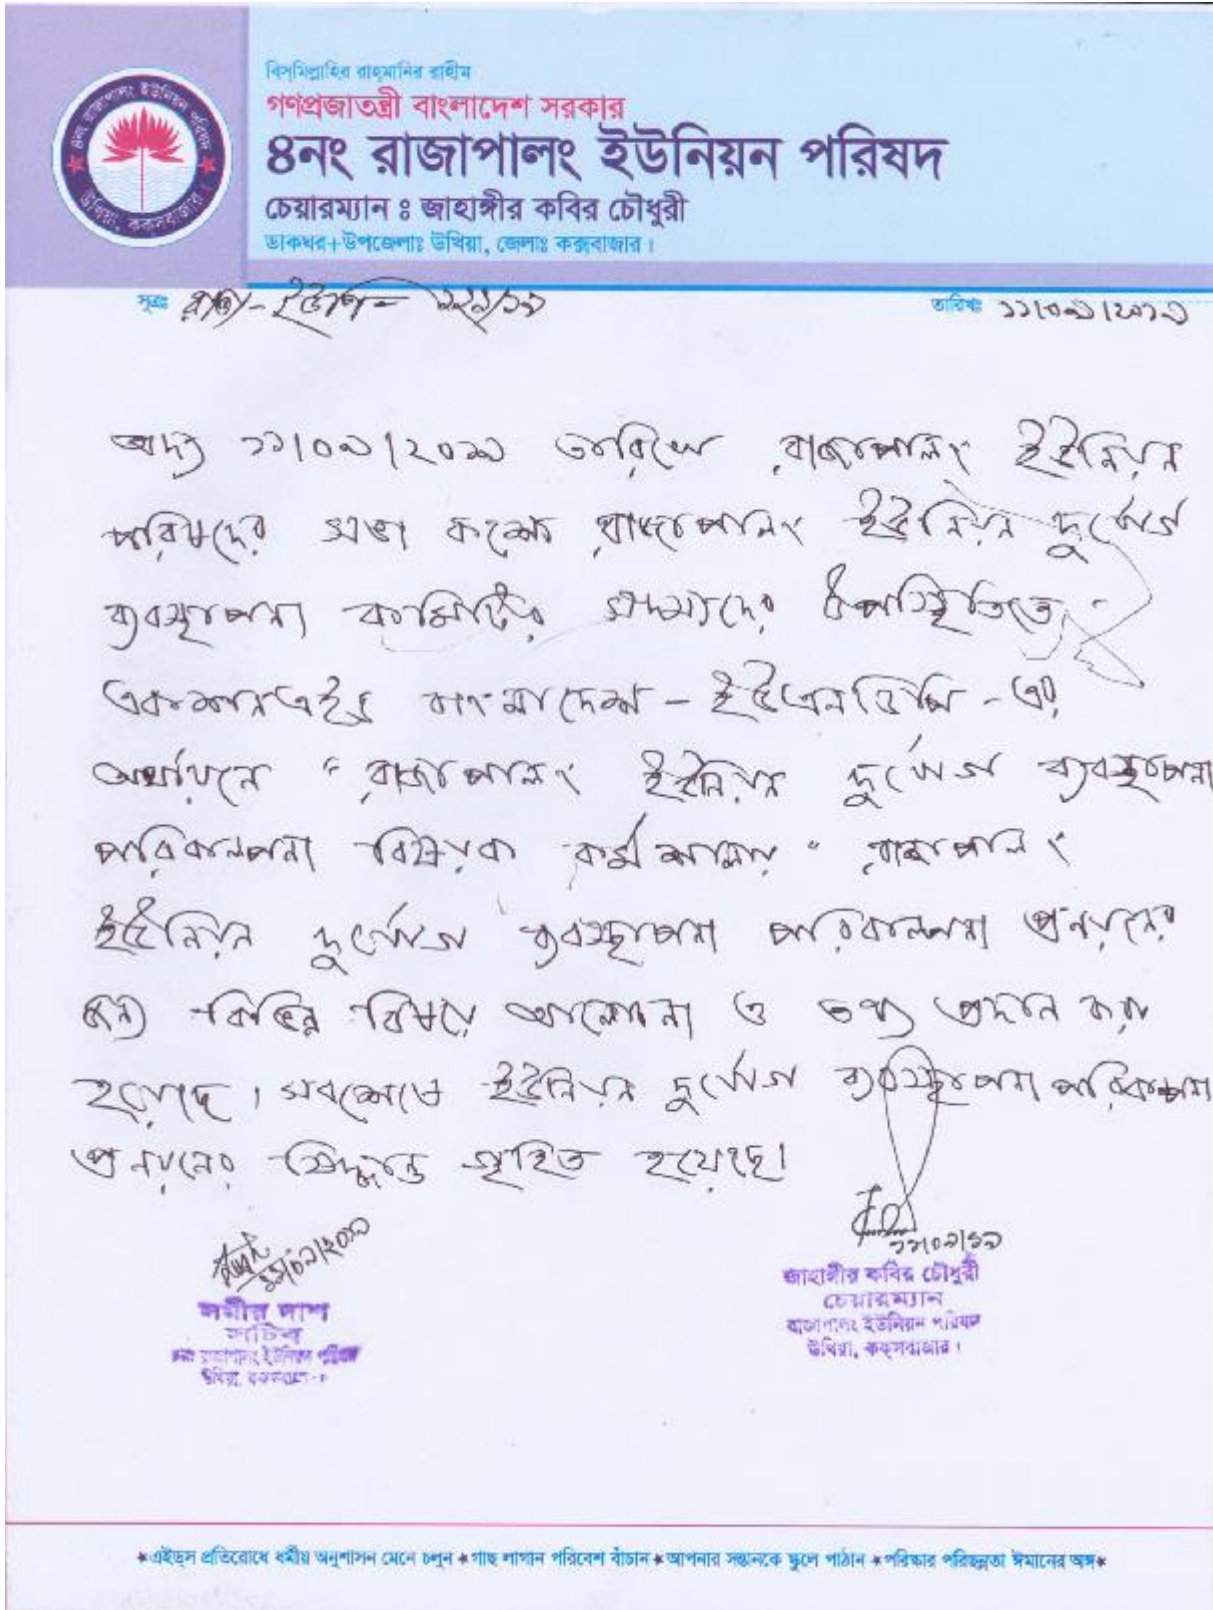 বিস্‌মিল্লাহির রাহ্‌মানির রাহীম
গণপ্রজাতন্ত্রী বাংলাদেশ সরকার
৪নং রাজাপালং ইউনিয়ন পরিষদ
চেয়ারম্যান ঃ জাহাঙ্গীর কবির চৌধুরী
ডাকঘর+উপজেলাঃ উখিয়া, জেলাঃ কক্সবাজার।
৪নং রাজাপালং ইউনিয়ন পরিষদ
উখিয়া, কক্সবাজার।
সূত্রঃ রাজা-ইউপি-
তারিখঃ ১১/০৯/২০১৯
অদ্য ১১/০৯/২০১৯ তারিখে রাজাপালং ইউনিয়ন
পরিষদের সভা কক্ষে রাজাপালং ইউনিয়ন দুর্যোগ
ব্যবস্থাপনা কমিটির সদস্যদের উপস্থিতিতে
একশনএইড বাংলাদেশ - ইউএনডিপি - এর
অর্থায়নে "রাজাপালং ইউনিয়ন দুর্যোগ ব্যবস্থাপনা
পরিকল্পনা বিষয়ক কর্মশালায়" রাজাপালং
ইউনিয়ন দুর্যোগ ব্যবস্থাপনা পরিকল্পনা প্রনয়নের
জন্য বিভিন্ন বিষয়ে আলোচনা ও তথ্য প্রদান করা
হয়েছে। সবশেষে ইউনিয়ন দুর্যোগ ব্যবস্থাপনা পরিকল্পনা
প্রনয়নের সিদ্ধান্ত গৃহিত হয়েছে।
১১/০৯/২০১৯
সমীর দাশ
সচিব
৪নং রাজাপালং ইউনিয়ন পরিষদ
উখিয়া, কক্সবাজার।
১১/০৯/১৯
জাহাঙ্গীর কবির চৌধুরী
চেয়ারম্যান
রাজাপালং ইউনিয়ন পরিষদ
উখিয়া, কক্সবাজার।
*এইড্‌স প্রতিরোধে ধর্মীয় অনুশাসন মেনে চলুন *গাছ লাগান পরিবেশ বাঁচান *আপনার সন্তানকে স্কুলে পাঠান *পরিষ্কার পরিচ্ছন্নতা ঈমানের অঙ্গ*